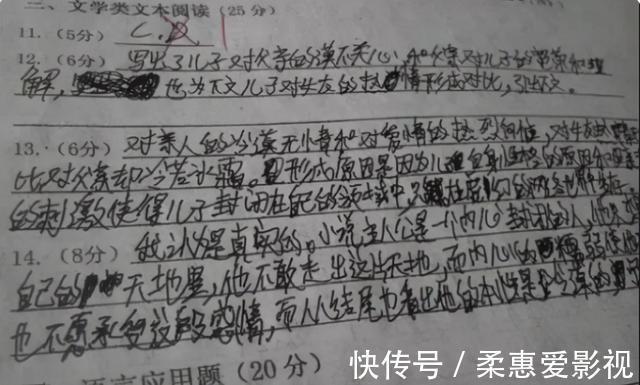 二、文学类文本阅读(25分)
11.(5分) C.
12.(6分) 写出了儿子对父亲的漠不关心,和父亲对儿子的
解, 也为下文儿子对女友的热情形成对比,引出下文。
13.(6分) 对亲人的冷漠无情和对爱情的热烈向往,对女友
比对父亲却冷若冰霜。形成原因是因为儿自身性格的原因和
的刺激使得儿子封闭在自己的领域中,只
14.(8分) 我认为是真实的。小说主人公是一个内心封闭的人,他
自己的天地里,他不敢走出这片天地,而内心的
也不愿承受这段感情,而从结尾也看出他的本性是个冷漠的
语言应用题(20分)
快传号/柔惠爱影视